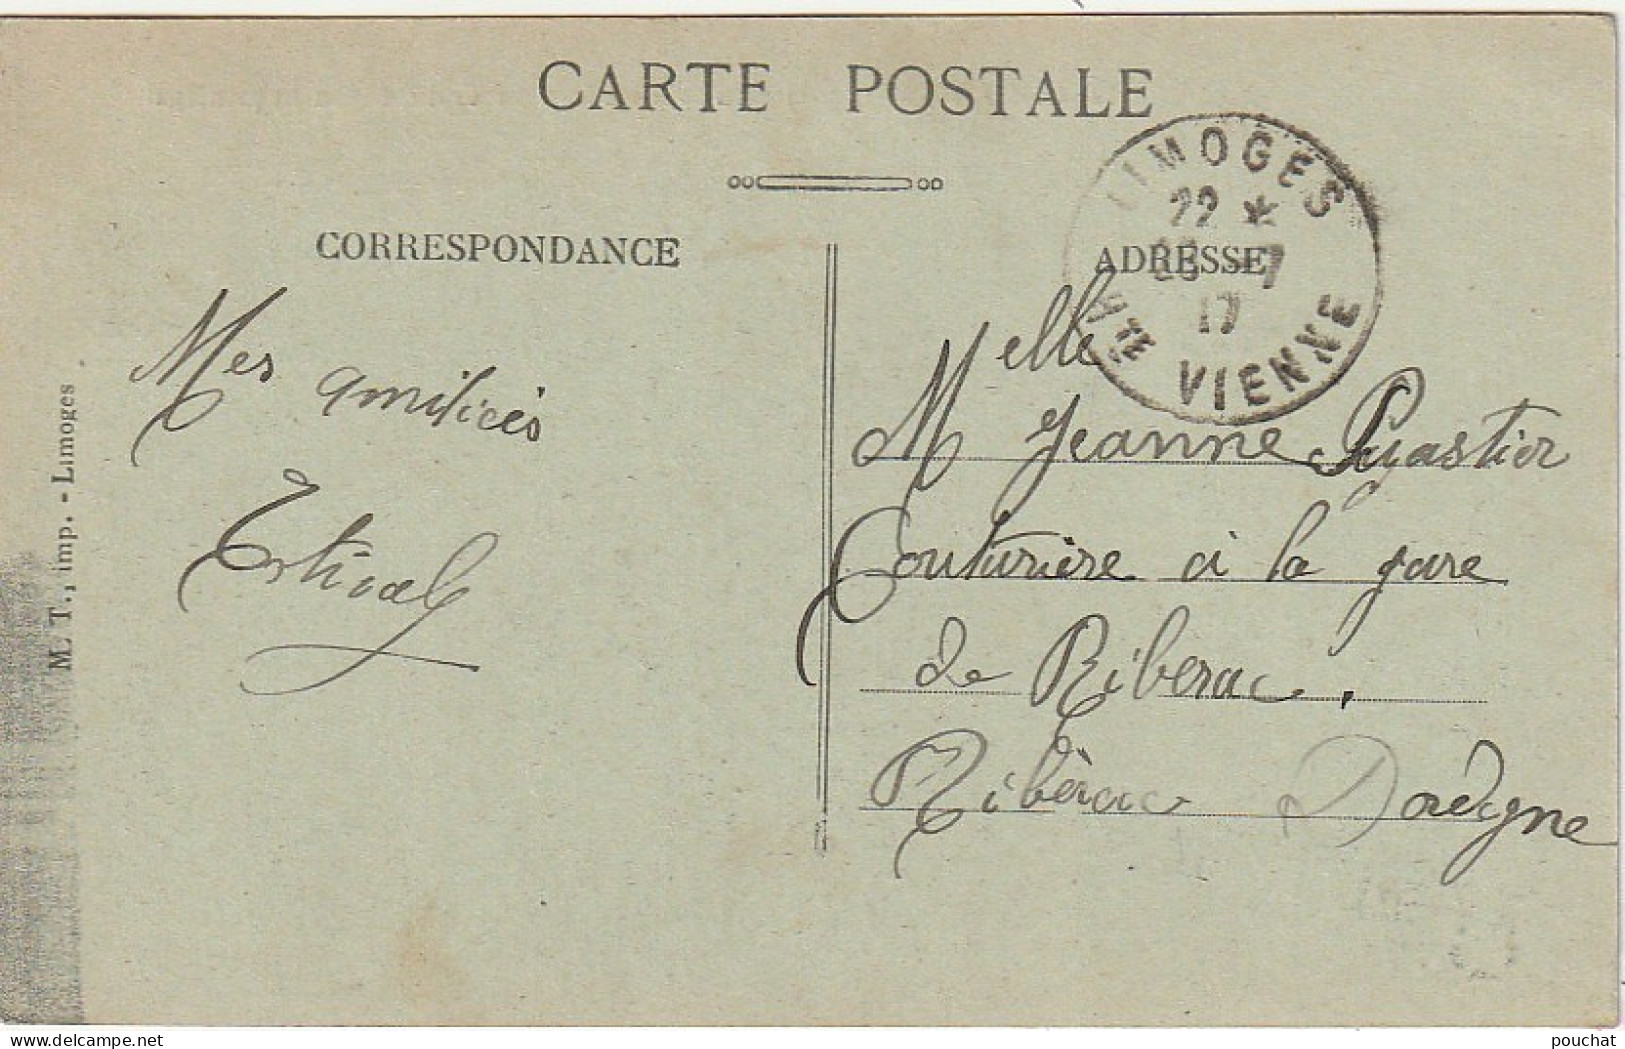 CARTE POSTALE
CORRESPONDANCE
ADRESSE
LIMOGES
22 *
-7
17
Hte VIENNE
Mes amitiés
Estival
Melle
M Jeanne Puyastier
Couturière à la gare
de Riberac.
Ribèrac Dordogne
M. T., imp. - Limoges
delcampe.net
pouchat